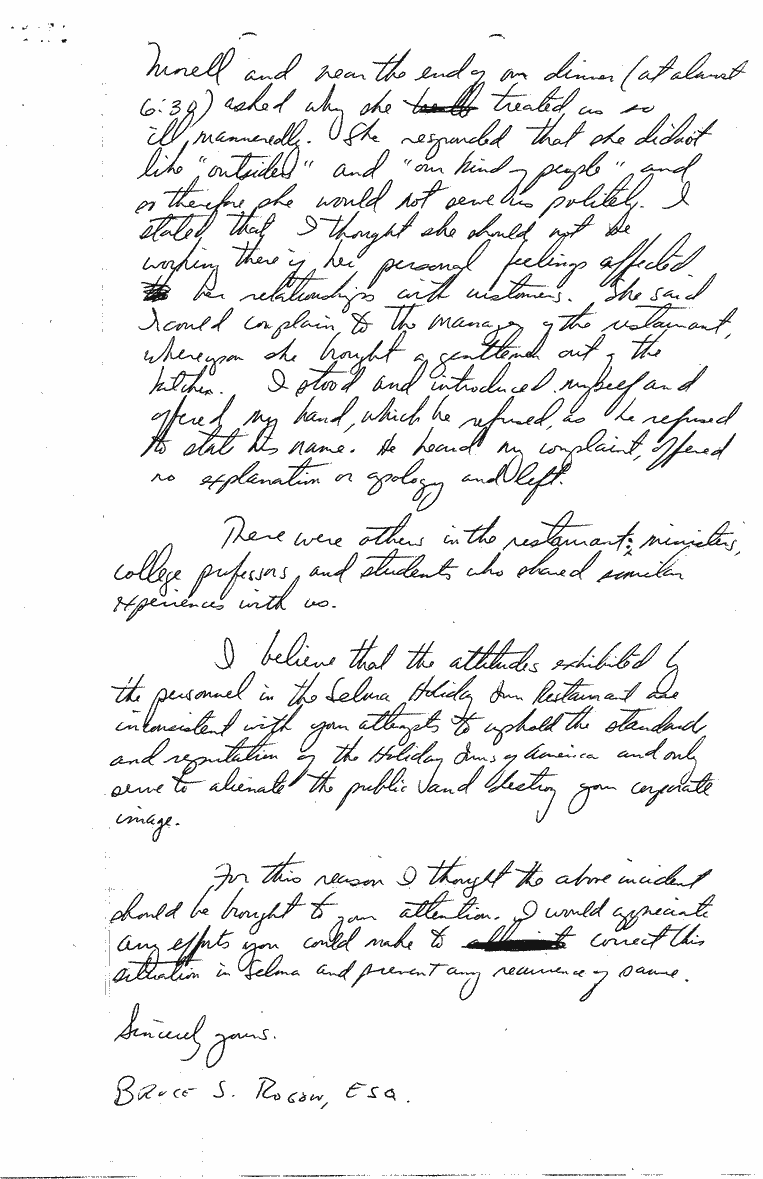 Morell and near the end of our dinner (at almost
6:30) asked why she treated us so
ill manneredly. She responded that she did not
like "outsiders" and "our kind of people" and
therefore she would not serve us politely. I
stated that I thought she should not be
working there if her personal feelings affected
her relationships with customers. She said
I could complain to the manager of the restaurant,
whereupon she brought a gentleman out of the
kitchen. I stood and introduced myself and
offered my hand, which he refused, as he refused
to state his name. He heard my complaint, offered
no explanation or apology and left.
There were others in the restaurant: ministers,
college professors, and students who shared similar
experiences with us.
I believe that the attitudes exhibited by
the personnel in the Selma Holiday Inn Restaurant are
inconsistent with your attempts to uphold the standard
and reputation of the Holiday Inns of America and only
serve to alienate the public and destroy your corporate
image.
For this reason I thought the above incident
should be brought to your attention. I would appreciate
any efforts you could make to correct this
situation in Selma and prevent any recurrence of same.
Sincerely yours.
BRUCE S. ROGOW, ESQ.